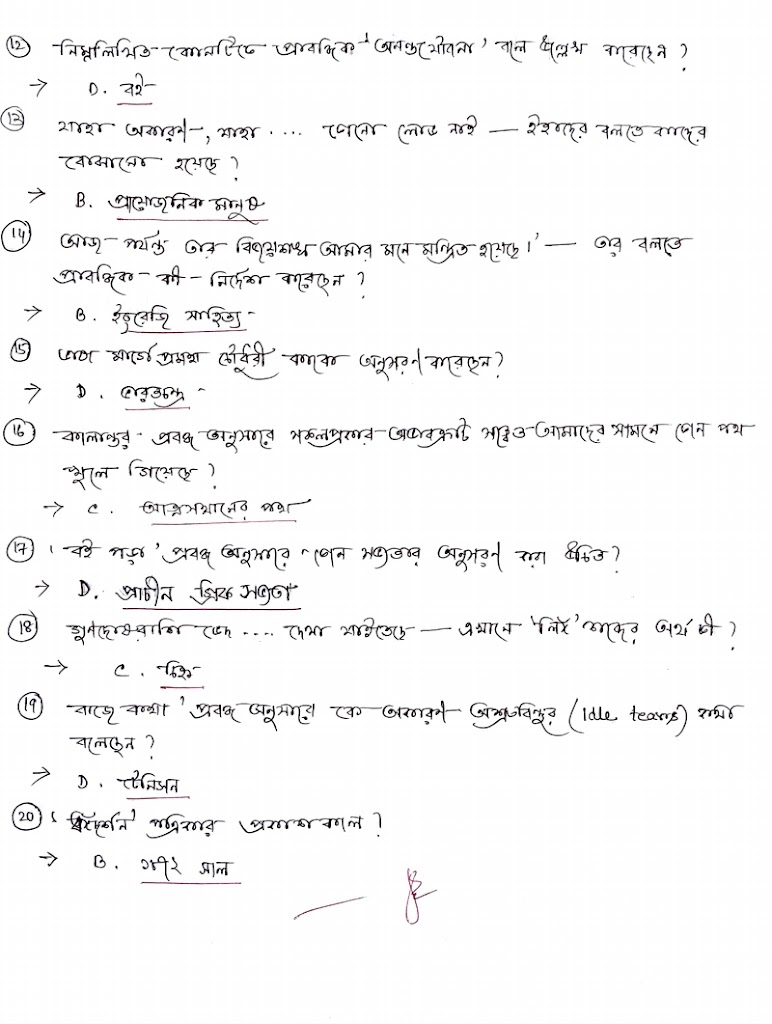 (12) নিম্নলিখিত কোনটিকে প্রাবন্ধিক 'অনন্তযৌবনা' বলে উল্লেখ করেছেন ?
→ D. বই
(13) যাহা অকারণ, যাহা .... কোনো লোভ নাই — ইহাদের বলতে কাদের
বোঝানো হয়েছে ?
→ B. প্রয়োজনিক মানুষ
(14) আজ পর্যন্ত তার বিজয়শঙ্খ আমার মনে মন্দ্রিত হয়েছে।' — তার বলতে
প্রাবন্ধিক কী নির্দেশ করেছেন ?
→ B. ইংরেজি সাহিত্য
(15) ভাষা মার্গে প্রমথ চৌধুরী কাকে অনুসরণ করেছেন ?
→ D. ভারতচন্দ্র
(16) কালান্তর প্রবন্ধ অনুসারে সকলপ্রকার অভাবত্রুটি সত্ত্বেও আমাদের সামনে কোন পথ
খুলে গিয়েছে ?
→ C. আত্মসম্মানের পথ
(17) 'বই পড়া' প্রবন্ধ অনুসারে কোন সভ্যতার অনুসরণ করা উচিত ?
→ D. প্রাচীন গ্রিক সভ্যতা
(18) .... দেখা যাইতেছে — এখানে 'লিঙ্গ' শব্দের অর্থ কী ?
→ C. চিহ্ন
(19) বাজে কথা' প্রবন্ধ অনুসারে কে অকারণ অশ্রুবিন্দুর (Idle tears) কথা
বলেছেন ?
→ D. টেনিসন
(20) 'বঙ্গদর্শন' পত্রিকার প্রকাশকাল ?
→ B. ১৮৭২ সাল